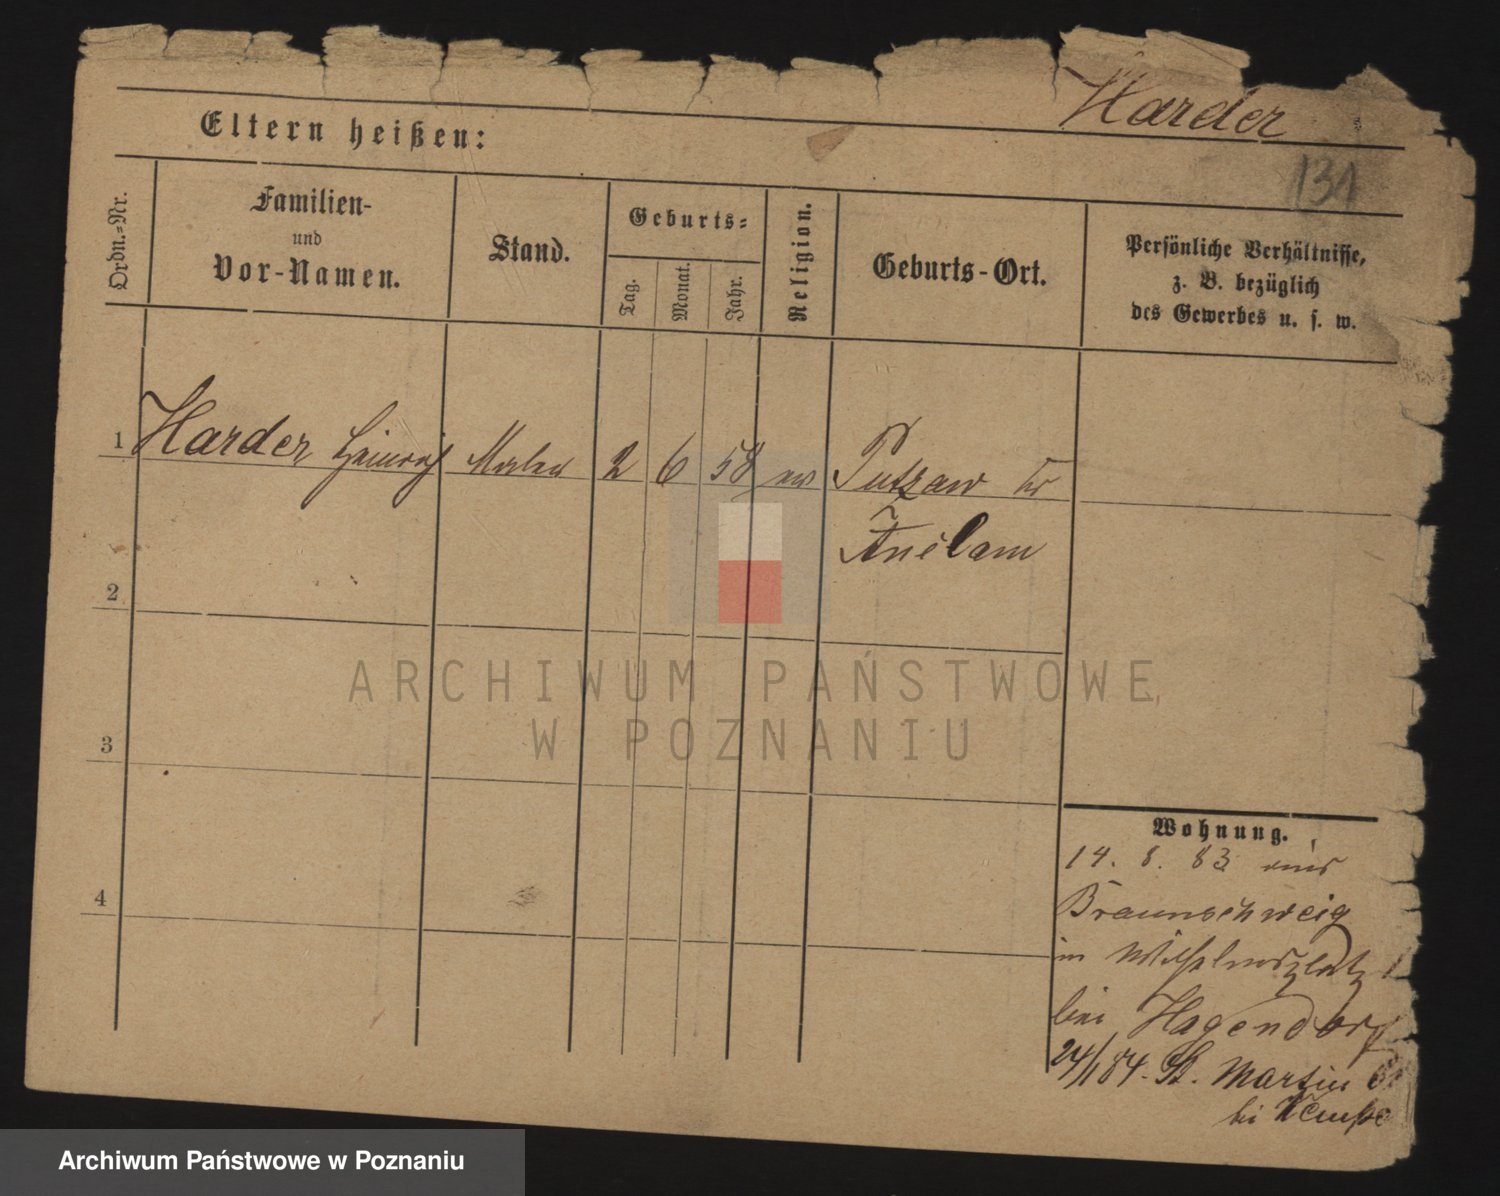 Harder
Eltern heißen:
131
Ordn.-Nr.
Familien-
und
Vor-Namen.
Stand.
Geburts-
Tag.
Monat.
Jahr.
Religion.
Geburts-Ort.
Persönliche Verhältnisse,
z. B. bezüglich
des Gewerbes u. s. w.
1 Harder Heinrich Maler 2 6 58 ev Putzaw Kr
Anclam
2
3
4
ARCHIWUM PAŃSTWOWE
W POZNANIU
Wohnung.
14. 8. 83 aus
Braunschweig
in Wilhelmsplatz 1
bei Hagendorf
24/1 84. St. Martin
bei Kempf
Archiwum Państwowe w Poznaniu